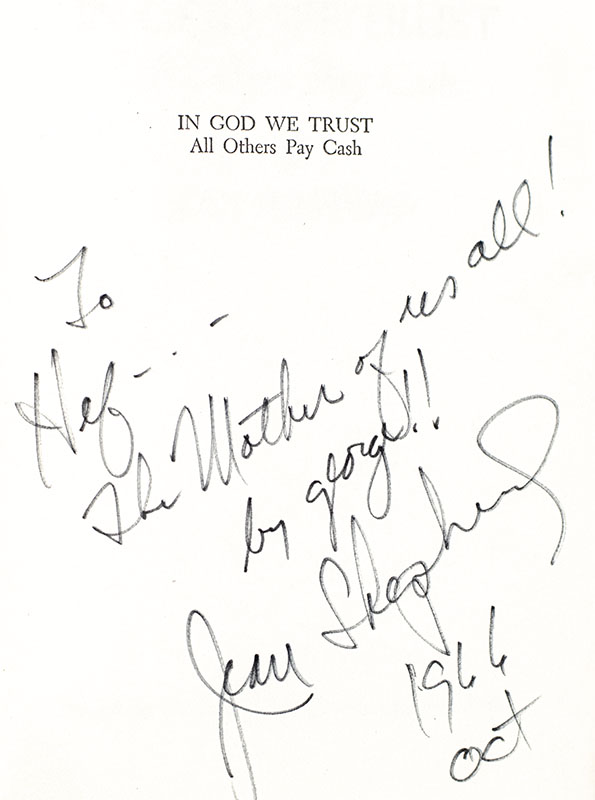 IN GOD WE TRUST
All Others Pay Cash
To
Hef - . . -
The Mother of us all!
by george!!
Jean Shepherd
1966
Oct